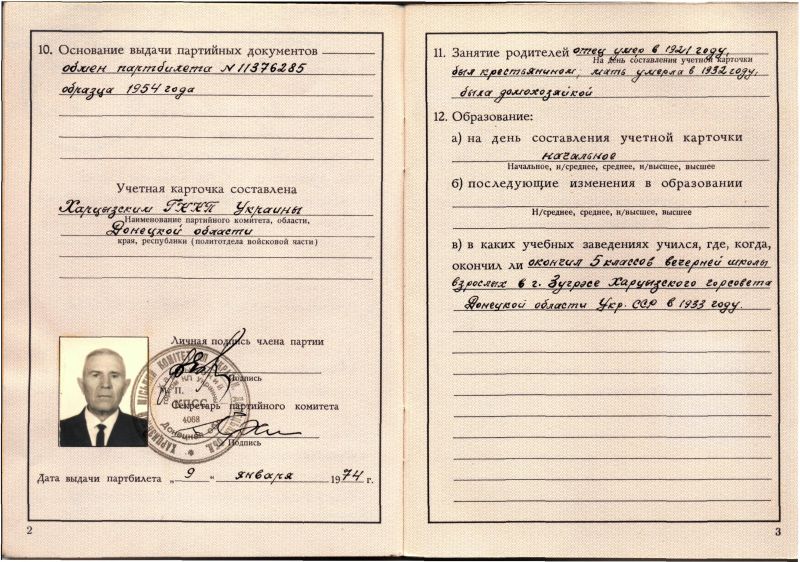 10. Основание выдачи партийных документов
обмен партбилета N 11376285
образца 1954 года
Учетная карточка составлена
Харцызским ГККП Украины
Наименование партийного комитета, области,
Донецкой области
края, республики (политотдела войсковой части)
Личная подпись члена партии
Подпись
М. П.
Секретарь партийного комитета
Подпись
КПСС
4068
Дата выдачи партбилета „ 9 “ января 1974 г.
2
11. Занятие родителей отец умер в 1921 году,
На день составления учетной карточки
был крестьянином, мать умерла в 1932 году,
была домохозяйкой
12. Образование:
а) на день составления учетной карточки
начальное
Начальное, н/среднее, среднее, н/высшее, высшее
б) последующие изменения в образовании
Н/среднее, среднее, н/высшее, высшее
в) в каких учебных заведениях учился, где, когда,
окончил ли окончил 5 классов вечерней школы
взрослых в г. Зугрэсе Харцызского горсовета
Донецкой области Укр. ССР в 1933 году.
3